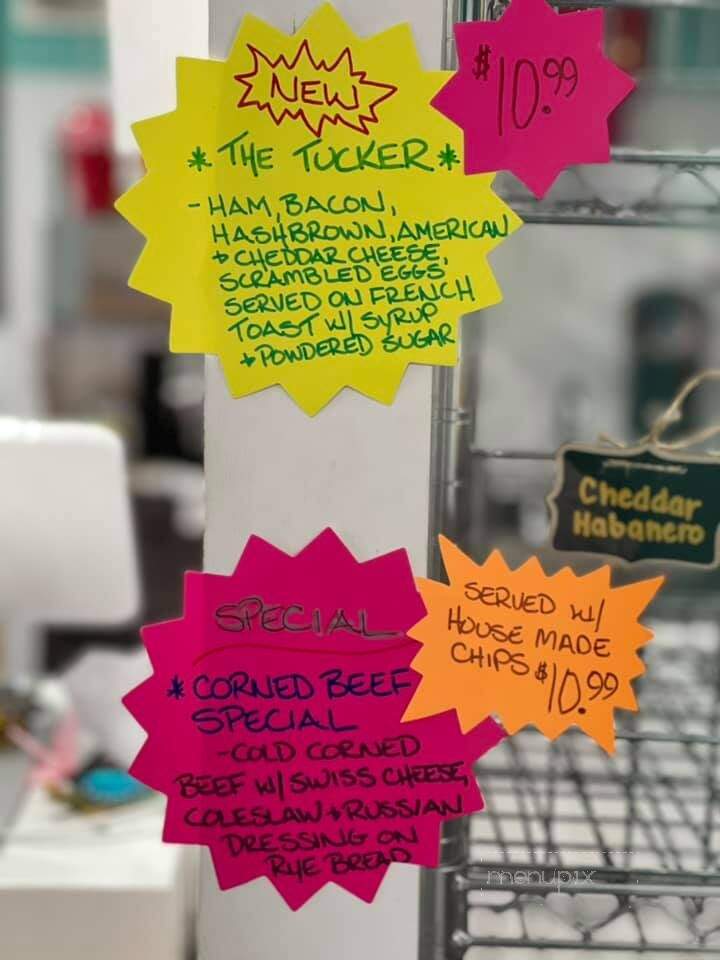 NEW
* THE TUCKER *
- HAM, BACON,
HASHBROWN, AMERICAN
+ CHEDDAR CHEESE,
SCRAMBLED EGGS
SERVED ON FRENCH
TOAST W/ SYRUP
+ POWDERED SUGAR
$10.99
Cheddar
Habanero
SPECIAL
* CORNED BEEF
SPECIAL
- COLD CORNED
BEEF W/ SWISS CHEESE,
COLESLAW + RUSSIAN
DRESSING ON
RYE BREAD
SERVED W/
HOUSE MADE
CHIPS $10.99
menupix